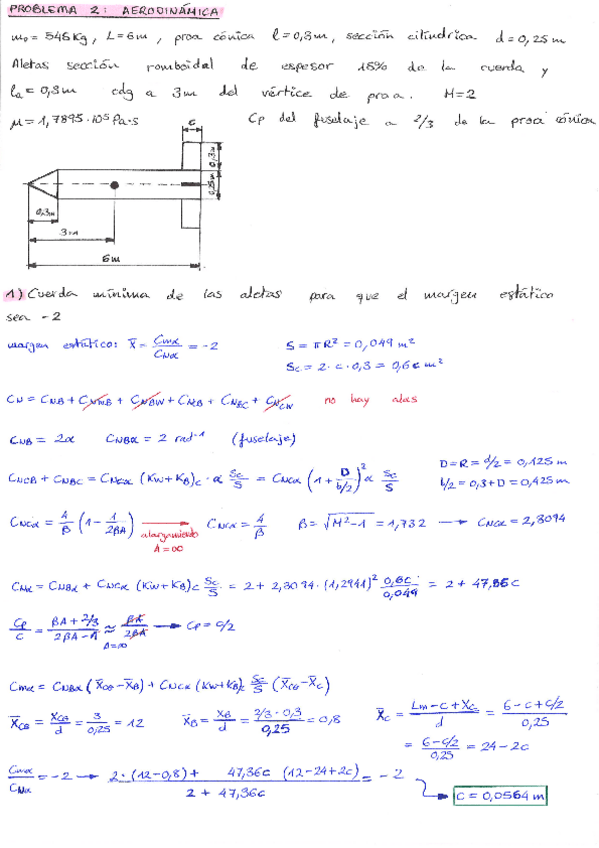 PROBLEMA 2: AERODINÁMICA
m₀ = 545Kg, L=6m, proa cónica l=0,3m, sección cilíndrica d=0,25m
Aletas sección romboidal de espesor 15% de la cuerda y
la = 0,3m cdg a 3m del vértice de proa. M=2
μ = 1,7895·10⁵ Pa·s Cp del fuselaje a 2/3 de la proa cónica
c
0,3m
0,25m
0,3m
3m
6m
1) Cuerda mínima de las aletas para que el margen estático
sea -2
margen estático: X̄ = Cmα/CNα = -2 S = πR² = 0,049 m²
Sc = 2·c·0,3 = 0,6c m²
CN = CNB + CNWB + CNBW + CNCB + CNBC + CNCW no hay alas
CNB = 2α CNBα = 2 rad⁻¹ (fuselaje)
D=R=d/2 = 0,125m
CNCB + CNBC = CNCα (KW+KB)c · α Sc/S = CNCα (1 + D/(b/2))² α Sc/S b/2 = 0,3+D = 0,425m
CNCα = 4/β (1 - 1/(2βA)) → alargamiento A=∞ CNCα = 4/β β = √(M²-1) = 1,732 → CNCα = 2,3094
CNα = CNBα + CNCα (KW+KB)c Sc/S = 2 + 2,3094·(1,2941)² 0,6c/0,049 = 2 + 47,36c
Cp/c = (βA + 2/3)/(2βA - A) ≈ βA/2βA → Cp = c/2
A=∞
Cmα = CNBα (X̄CG - X̄B) + CNCα (KW+KB)c Sc/S (X̄CG - X̄C)
X̄CG = XCG/d = 3/0,25 = 12 X̄B = XB/d = (2/3·0,3)/0,25 = 0,8 X̄C = (Lm - C + XC)/d = (6 - c + c/2)/0,25
= (6 - c/2)/0,25 = 24 - 2c
Cmα/CNα = -2 → (2·(12-0,8) + 47,36c (12-24+2c))/(2 + 47,36c) = -2
c = 0,0564 m